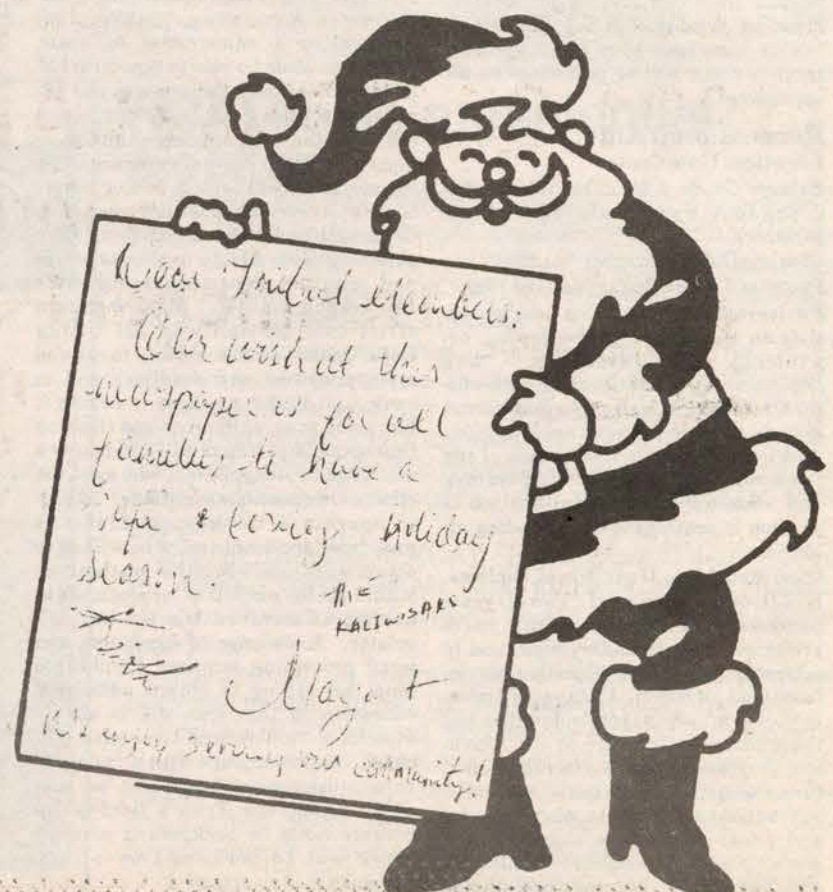 Dear Tribal Members:
Our wish at this
newspaper is for all
families to have a
safe & loving holiday
season
THE
KALIWISAKS
We enjoy serving our community!